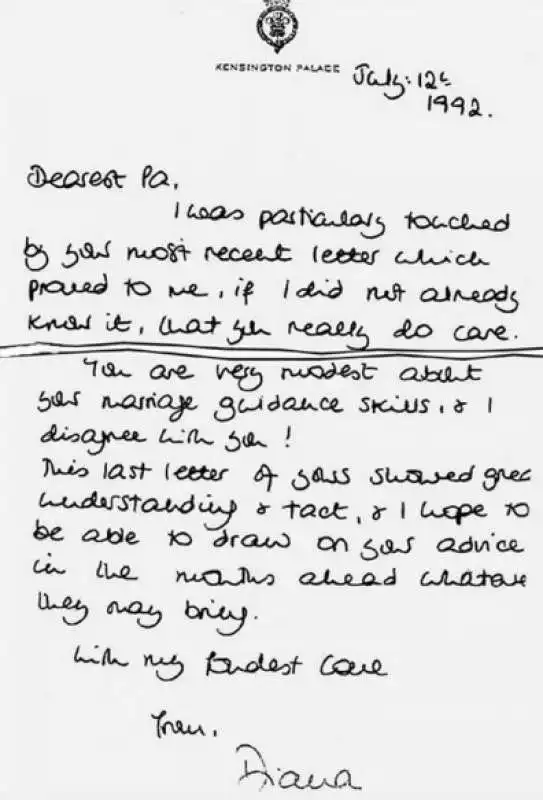 KENSINGTON PALACE
July: 12th
1992.
Dearest Pa,
I was particulary touched
by your most recent letter which
proved to me, if I did not already
know it, that you really do care.
You are very modest about
your marriage guidance skills, & I
disagree with you!
This last letter of yours showed great
understanding & tact, & I hope to
be able to draw on your advice
in the months ahead whatever
they may bring.
With my fondest love
from,
Diana